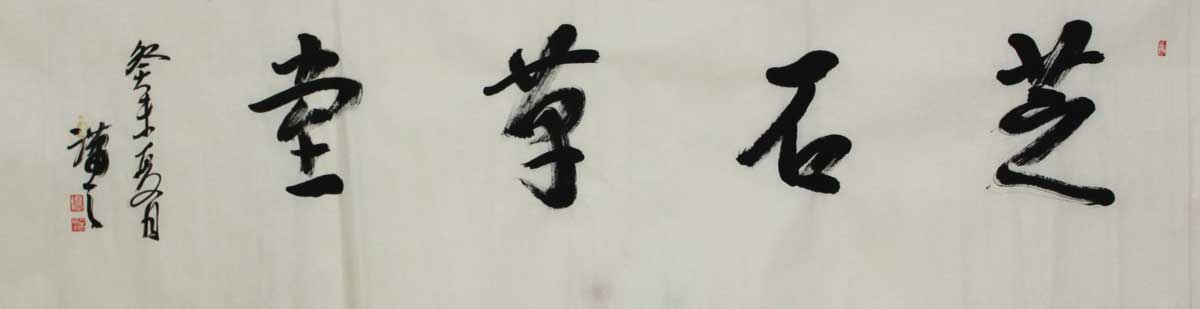 芝石草堂
癸未夏月